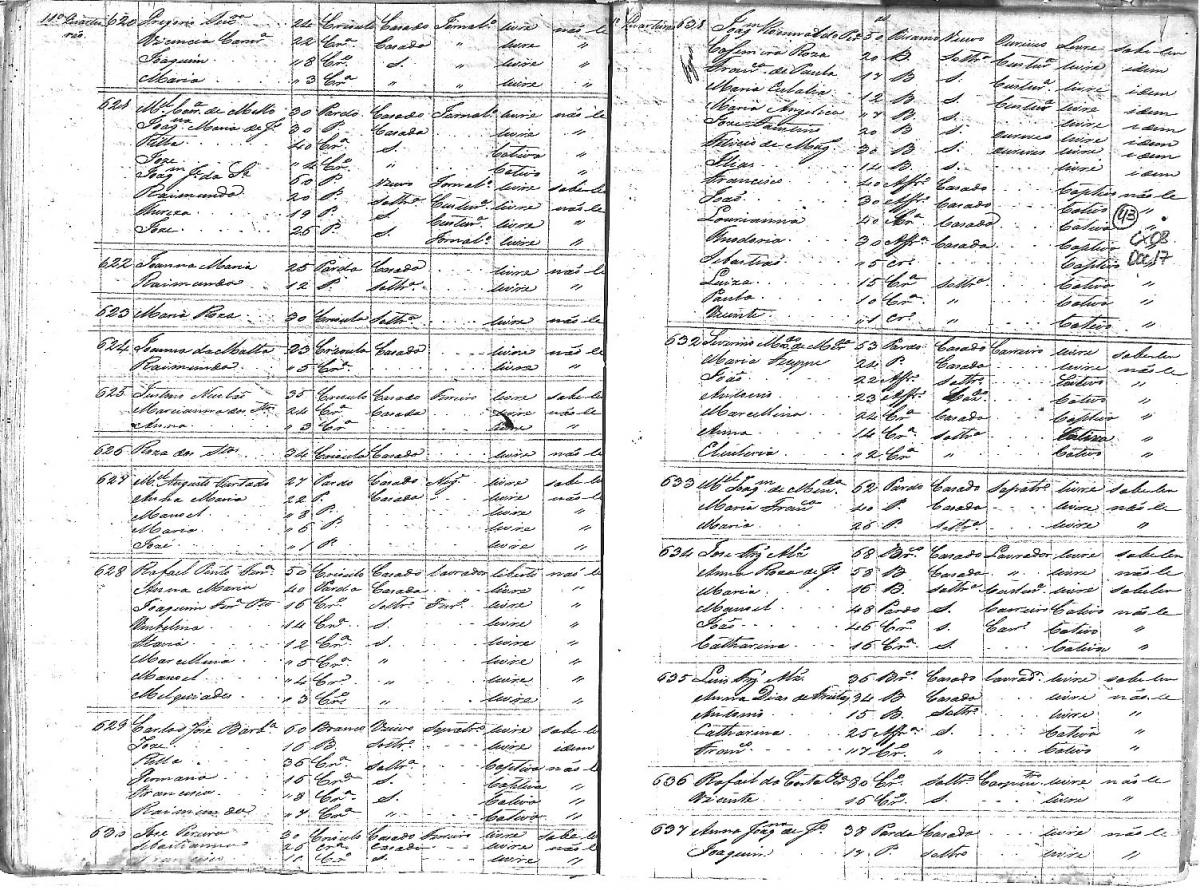 11º Quarteirão. 620 Gregorio 24 Crioulo Casado Jornalº livre não le
Vicencia 22 Crª Casada " livre não le
Joaquim " 8 Crº S. " livre "
Maria " 3 Crª " " livre "
621 30 Pardo Casado Jornalº livre não le
Joaqna Maria de Js 30 P. Casada livre "
Ritta 40 Crª S. Cativa "
Joze " 4 Crº " Cativo "
Joaqm Je da Sª 60 P. Viuvo Jornalº livre sabe-le
Raimunda 20 P. Soltª Custurª livre não le
19 P. S. Custurª livre "
Joze 25 P. S. Jornalº livre "
622 Joanna Maria 25 Parda Casada livre não-le
Raimunda 12 P. Soltª livre "
623 Maria Roza 30 Crioula Soltª livre não le
624 Joanna da Matta 23 Crioula Casada livre não le
Raimunda " 5 Crª livre "
625 35 Crioulo Casado livre sabe-le
Marcianna dos 24 Crª Casada livre não-le
Anna " 3 Crª livre "
626 Roza dos 34 Crioula Casada livre não le
627 Mel Augusto Furtado 27 Pardo Casado Neg. livre sabe-le
Anna Maria 22 P. Casada livre não-le
Manoel " 8 P. livre "
Maria " 6 P. livre "
José " 1 P. livre "
628 Rafael 50 Crioulo Casado Lavrador liberto não le
Anna Maria 40 Parda Casada livre "
Joaquim 16 Crº. Soltrº livre "
Umbelina 14 Crª S. livre "
Maria 12 Crª S. livre "
Marcelina " 5 Crª " livre "
Manoel " 4 Crº " livre "
Melquiades " 3 Crº " livre "
629 Carlos José Barbª 60 Branco Viuvo Sapatrº livre sabe-le
Joze 16 B. Soltrº livre idem
Ritta 36 Crª Soltª Captiva não-le
Germana 16 Crª S. Captiva "
Francisca " 8 Crª S. Cativa "
Raimunda " 7 Crª " Cativa "
630 Joze Pereira 30 Crioulo Casado livre sabe-le
26 Crª Casada livre não le
Francisco 10 Crº S. livre "
Quarteirão 631 50 Branco Viuvo Ourives Livre sabe-ler
Casemira Roza 20 B. Soltª Custurª livre idem
Franca de Paula 17 B S. Custurª livre idem
Maria Eulalia 12 B S. Custurª livre idem
Maria Angelica " 7 B S. livre idem
Joze 20 B S. ourives livre idem
30 B S. ourives livre idem
Elias 14 B S. livre idem
Francisco 40 Affrº Casado Captivo não-le
João 30 Affrº Casado Cativo "
Lourianna 40 Crª Casada Cativa "
Theodoria 30 Affrª Casada Captiva "
Sebastião " 5 Crº Captivo "
Luiza 15 Crª Soltª Cativa "
Paula 10 Crª " Cativa "
Vicente " 1 Crº. Cativo "
43
CX 08
Doc 17
632 Severino 53 Pardo Casado Carreiro livre sabe-ler
Maria 24 P. Casada livre não le
João 22 Affrº Soltrº Cativo "
Antonio 23 Affrº Cativo "
Marcellina 24 Crª Casada Captiva "
Anna 14 Crª Soltª Cativa "
Eleuteria " 2 Crª " Cativa "
633 Mel Joaqm de 62 Pardo Casado Sapatrº livre sabe-ler
Maria Franca 40 P. Casada livre não-le
Maria 26 P. Soltª livre "
634 Joze 68 Brº. Casado Lavrador livre sabe-ler
Anna Roza de Js 58 B. Casada " livre não-le
Maria 16 B. Soltª Custurª livre sabe-ler
Manoel 48 Pardo S. Carreiro Cativo não-le
João 46 Crº. S. Carrº Cativo "
Catharina 16 Crª S. Cativa "
635 Luis 36 Brº. Casado Lavradº. livre sabe-ler
Anna Dias de Freitas 34 B Casada livre não-le
Antonio 15 B. Soltrº. livre "
Catharina 25 Afrª " Cativa "
Franco " 7 Crº " Cativo "
636 Rafael da Costa 30 Crº. Soltrº livre não-le
Vicente 16 Crº. S. livre "
637 Anna Joaqna de Js 38 Parda Casada livre não-le
Joaquim 17 P. Soltrº livre "